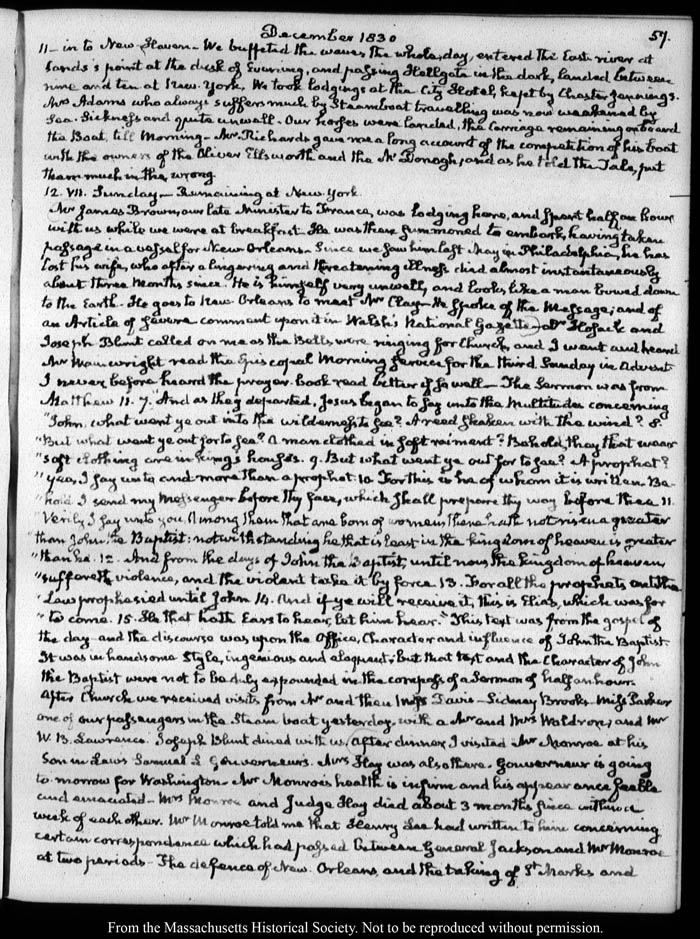 December 1830
57.
11 - in to New-Haven - We buffeted the waves the whole day, entered the East river at
Sands's point at the dusk of Evening, and passing Hellgate in the dark, landed between
nine and ten at New-York. We took lodgings at the City Hotel, kept by Chester Jennings.
Mrs Adams who always suffers much by Steamboat travelling was now weakened by
Sea-Sickness and quite unwell - Our horses were landed, the Carriage remaining on board
the Boat till Morning - Mr Richards gave me a long account of the competition of his boat
with the owners of the Oliver Ellsworth and the McDonogh, and as he told the Tale, put
them much in the wrong.
12. VII. Sunday - Remaining at New-York
Mr James Brown, our late Minister to France, was lodging here, and spent half an hour
with us while we were at breakfast. He was then summoned to embark, having taken
passage in a vessel for New-Orleans - Since we saw him last May in Philadelphia, he has
lost his wife, who after a lingering and threatening illness died almost instantaneously
about three Months since. He is himself very unwell, and looks like a man bowed down
to the Earth - He goes to New-Orleans to meet Mr Clay - He spoke of the Message; and of
an Article of severe comment upon it in Walsh's National Gazette - Dr Hosack and
Joseph Blunt called on me as the Bells were ringing for Church, and I went and heard
Mr Wainwright read the Episcopal Morning Service for the third Sunday in Advent
I never before heard the prayer-book read better if so well - The Sermon was from
Matthew 11. 7. And as they departed, Jesus began to say unto the Multitudes concerning
"John, what went ye out into the wilderness to see? A reed shaken with the wind? 8.
"But what went ye out for to see? A man clothed in soft raiment? Behold, they that wear
"soft clothing are in kings houses. 9. But what went ye out for to see? A prophet?
"yea, I say unto and more than a prophet. 10 For this is he of whom it is written. Be-
"hold I send my Messenger before thy face, which shall prepare thy way before thee 11.
"Verily I say unto you, Among them that are born of women there hath not risen a greater
"than John the Baptist: notwithstanding he that is least in the kingdom of heaven is greater
"than he. 12. And from the days of John the Baptist, until now the kingdom of heaven
"suffereth violence, and the violent take it by force 13. For all the prophets and the
"Law prophesied until John 14. And if ye will receive it, this is Elias, which was for
"to come. 15. He that hath Ears to hear, let him hear." This text was from the gospel of
the day - and the discourse was upon the Office, Character and influence of John the Baptist.
It was in handsome Style, ingenious and eloquent; but that text and the Character of John
the Baptist were not to be duly expounded in the compass of a Sermon of half an hour.
After Church we received visits from Mr and then Miss Davis - Sidney Brooks - Miss Parker
one of our passengers in the Steam boat yesterday, with a Mr and Mrs Waldron, and Mr
W. B. Lawrence. Joseph Blunt dined with us, after dinner, I visited Mr Monroe at his
Son in Law's Samuel L Gouverneur's. Mrs Hay was also there. Gouverneur is going
to morrow for Washington - Mr Monroe's health is infirm and his appearance feeble
and emaciated - Mrs Monroe and Judge Hay died about 3 months since within a
week of each other. Mr Monroe told me that Henry Lee had written to him concerning
certain correspondence which had passed between General Jackson and Mr Monroe
at two periods - The defence of New-Orleans, and the taking of St Marks and
From the Massachusetts Historical Society. Not to be reproduced without permission.